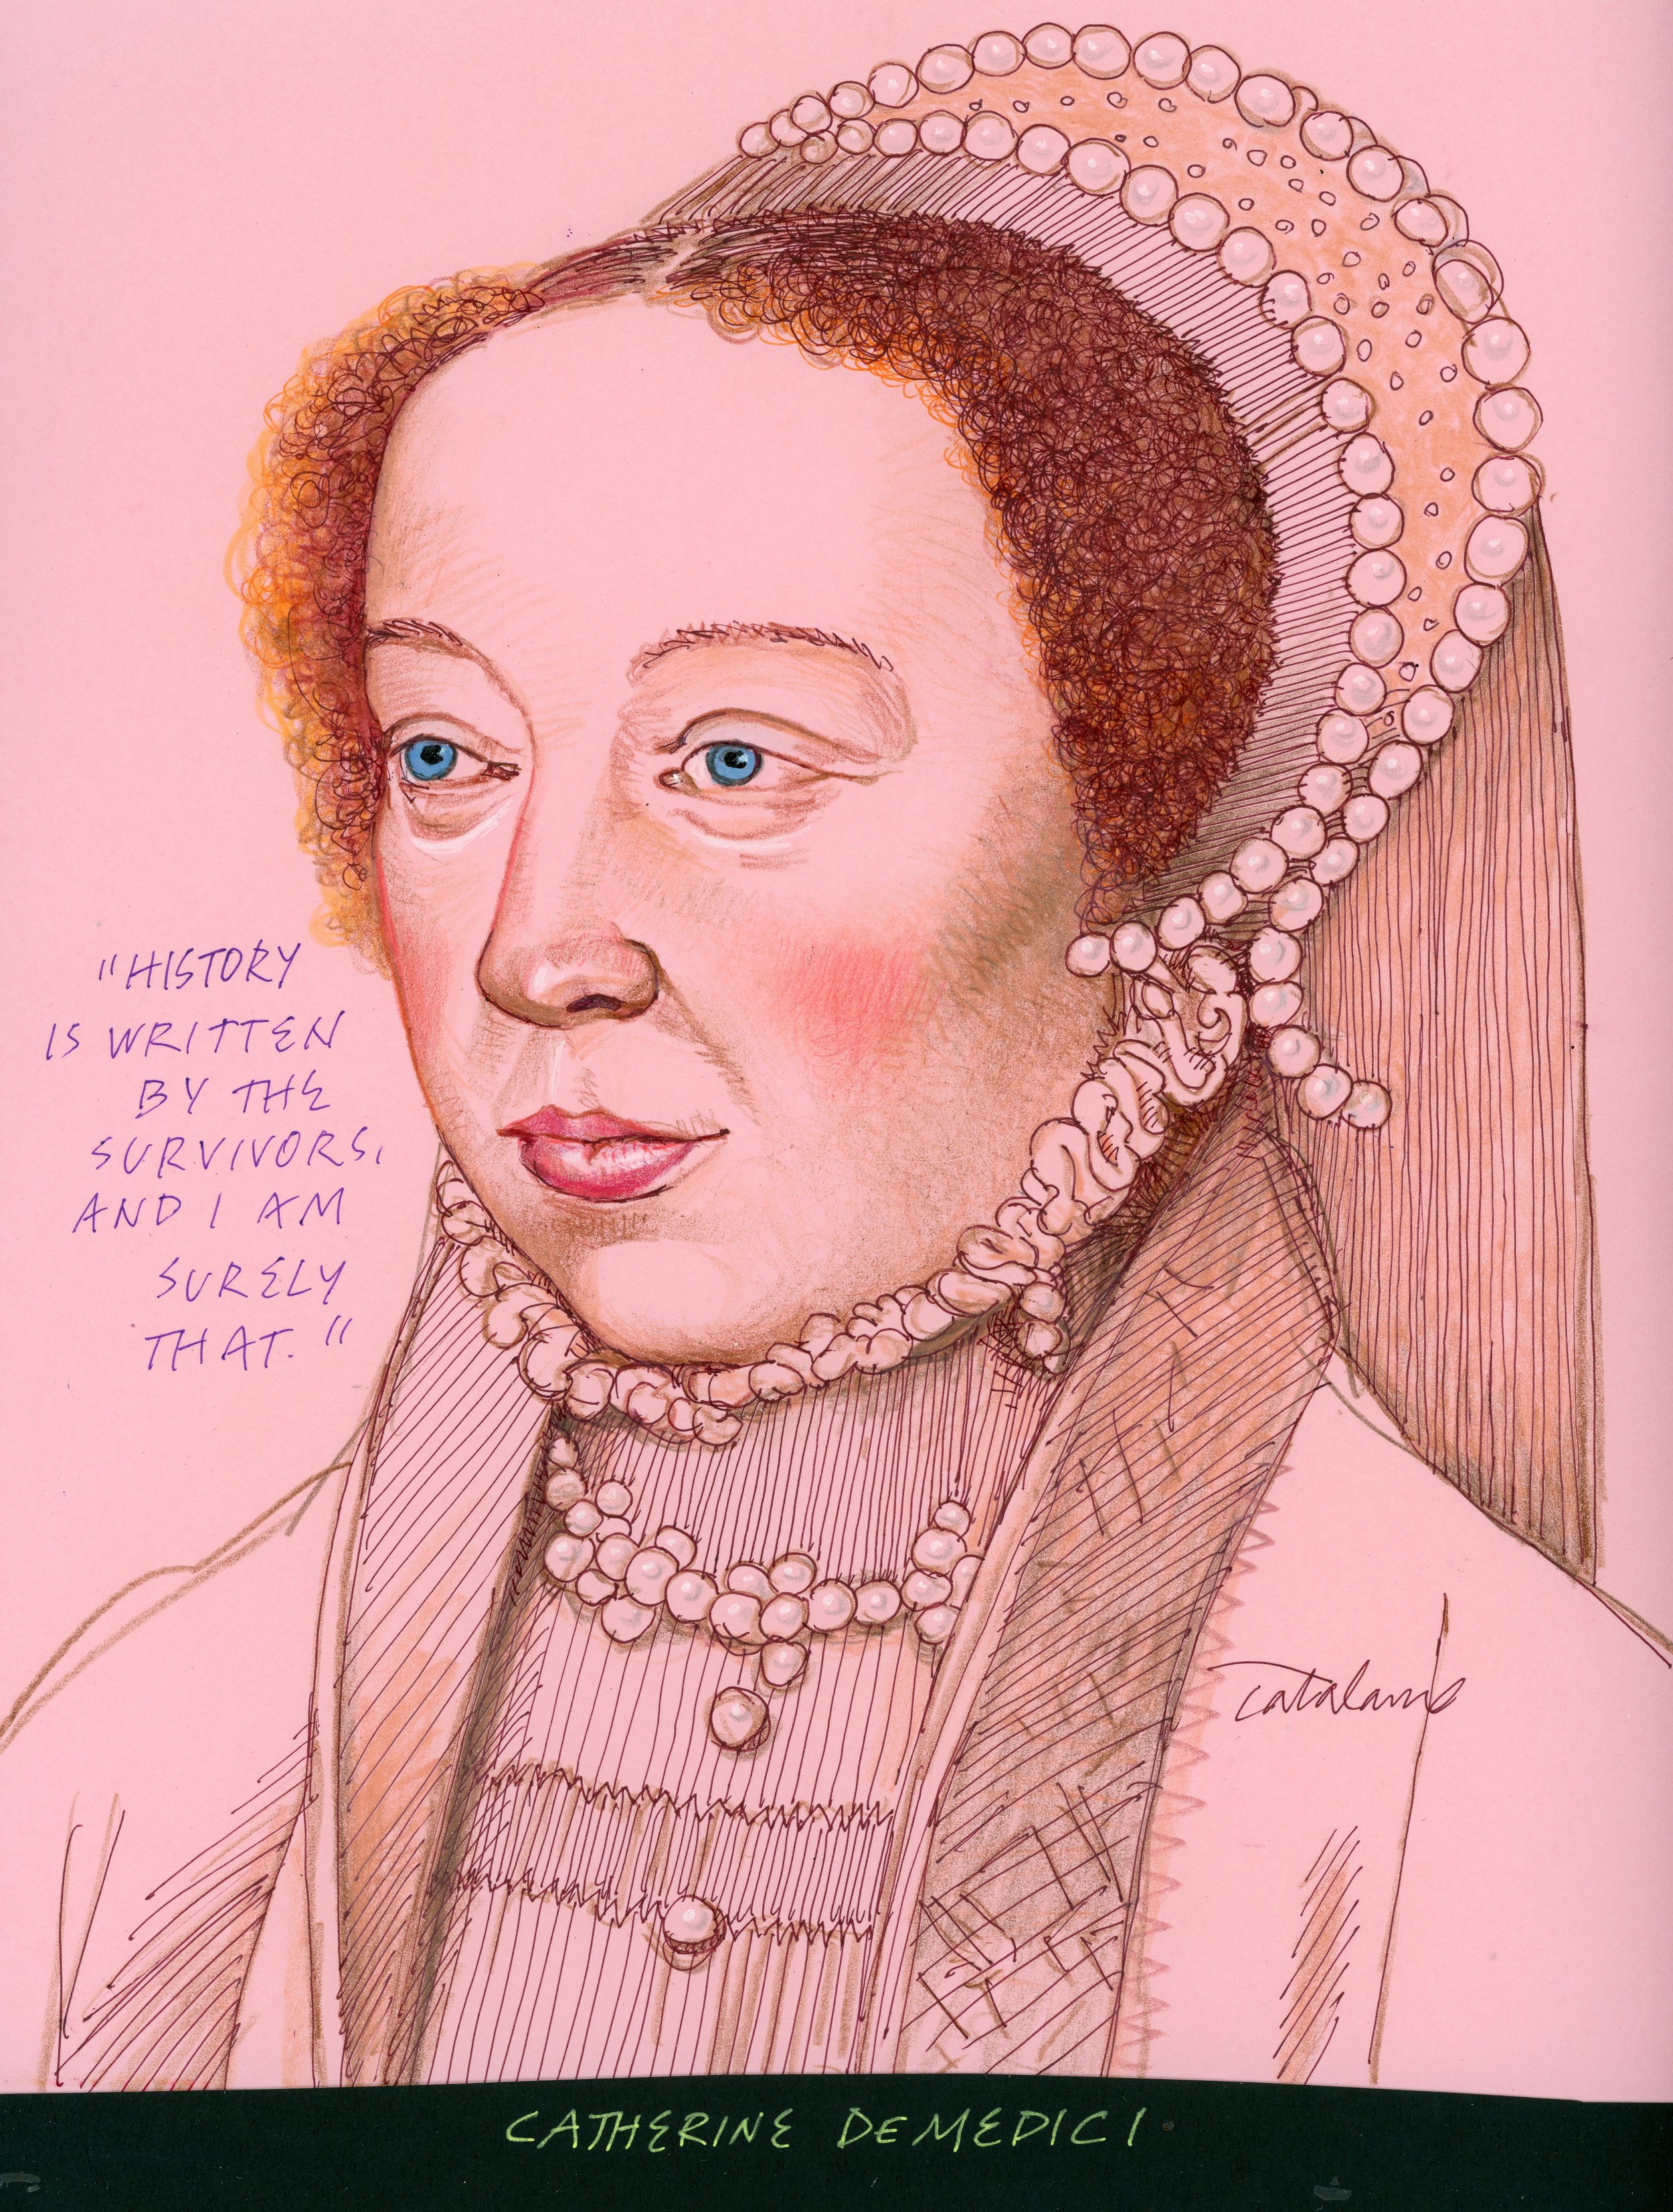 "HISTORY
IS WRITTEN
BY THE
SURVIVORS,
AND I AM
SURELY
THAT."
CATHERINE DE MEDICI